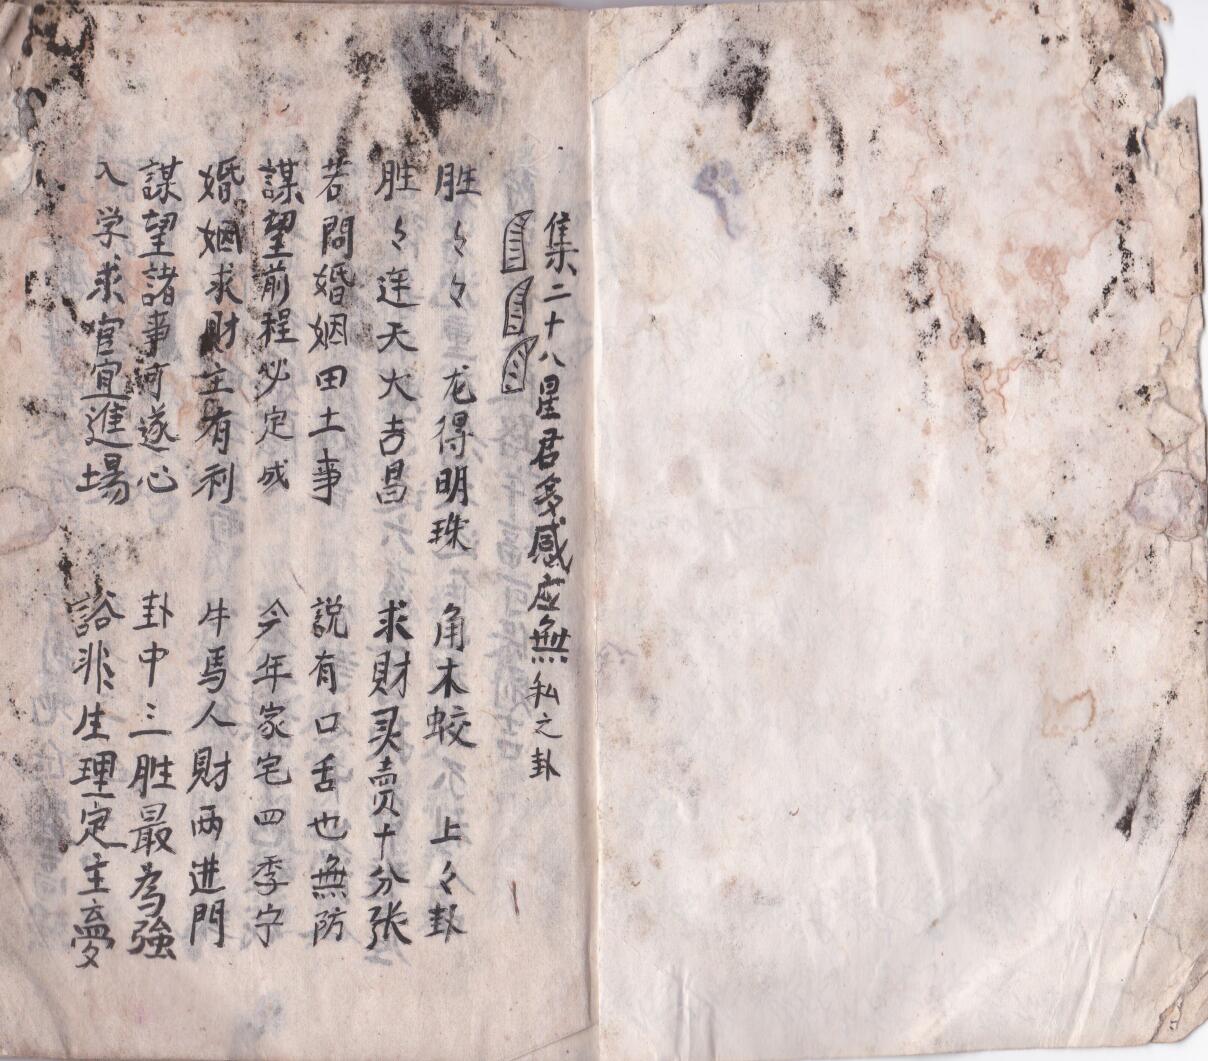 集二十八星君多感应無私之卦
胜々々 龙得明珠 角木蛟 上々卦
胜々連天大吉昌 求財买賣十分张
若問婚姻田土事 説有口舌也無防
謀望前程必定成 今年家宅四季宁
婚姻求財主有利 牛馬人財两进門
謀望諸事可遂心 卦中三胜最為強
入学求官宜進場 非生理定主